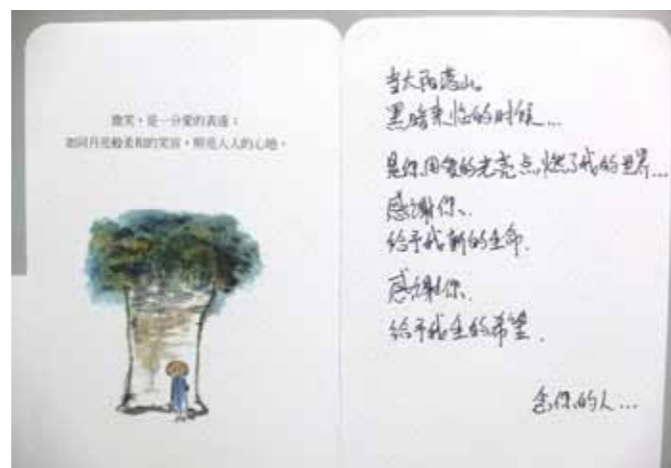 微笑，是一分愛的表達；
如同月亮般柔和的笑容，照亮人人的心地。
当太阳落山。
黑暗来临的时候...
是你用爱的光亮点燃了我的世界...
感谢你、
给予我新的生命.
感谢你、
给予我生的希望.
念你的人...